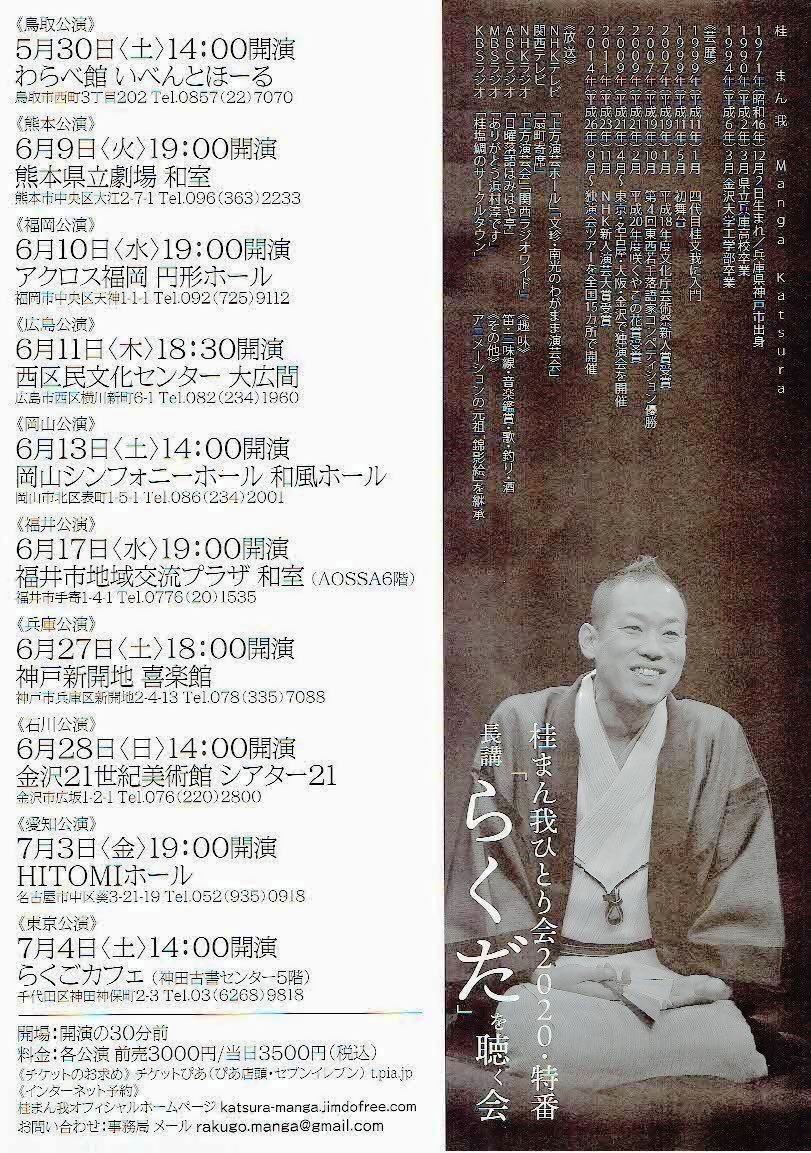 《鳥取公演》
5月30日〈土〉14:00開演
わらべ館 いべんとほーる
鳥取市西町3丁目202 Tel.0857(22)7070
《熊本公演》
6月9日〈火〉19:00開演
熊本県立劇場 和室
熊本市中央区大江2-7-1 Tel.096(363)2233
《福岡公演》
6月10日〈水〉19:00開演
アクロス福岡 円形ホール
福岡市中央区天神1-1-1 Tel.092(725)9112
《広島公演》
6月11日〈木〉18:30開演
西区民文化センター 大広間
広島市西区横川新町6-1 Tel.082(234)1960
《岡山公演》
6月13日〈土〉14:00開演
岡山シンフォニーホール 和風ホール
岡山市北区表町1-5-1 Tel.086(234)2001
《福井公演》
6月17日〈水〉19:00開演
福井市地域交流プラザ 和室 (AOSSA6階)
福井市手寄1-4-1 Tel.0776(20)1535
《兵庫公演》
6月27日〈土〉18:00開演
神戸新開地 喜楽館
神戸市兵庫区新開地2-4-13 Tel.078(335)7088
《石川公演》
6月28日〈日〉14:00開演
金沢21世紀美術館 シアター21
金沢市広坂1-2-1 Tel.076(220)2800
《愛知公演》
7月3日〈金〉19:00開演
HITOMIホール
名古屋市中区葵3-21-19 Tel.052(935)0918
《東京公演》
7月4日〈土〉14:00開演
らくごカフェ (神田古書センター5階)
千代田区神田神保町2-3 Tel.03(6268)9818
開場:開演の30分前
料金:各公演 前売3000円/当日3500円(税込)
《チケットのお求め》 チケットぴあ(ぴあ店頭・セブンイレブン) t.pia.jp
《インターネット予約》
桂まん我オフィシャルホームページ katsura-manga.jimdofree.com
お問い合わせ:事務局 メール rakugo.manga@gmail.com
桂 まん我 Manga Katsura
1971年(昭和46年)12月2日生まれ/兵庫県神戸市出身
1990年(平成2年)3月 県立兵庫高校卒業
1994年(平成6年)3月 金沢大学工学部卒業
《芸歴》
1999年(平成11年)1月 四代目桂文我に入門
1999年(平成11年)5月 初舞台
2007年(平成19年)1月 平成18年度文化庁芸術祭新人賞受賞
2007年(平成19年)10月 第4回東西若手落語家コンペティション優勝
2009年(平成21年)2月 平成20年度咲くやこの花賞受賞
2009年(平成21年)4月〜 東京・名古屋・大阪・金沢で独演会を開催
2011年(平成23年)11月 NHK新人演芸大賞受賞
2014年(平成26年)9月〜 独演会ツアーを全国15カ所で開催
《放送》
NHKテレビ 「上方演芸ホール」「文珍・南光のわがまま演芸会」
関西テレビ 「扇町寄席」
NHKラジオ 「上方演芸会」「関西ラジオワイド」
ABCラジオ 「日曜落語なみはや亭」
MBSラジオ 「ありがとう浜村淳です」
KBSラジオ 「桂塩鯛のサークルタウン」
《趣味》
笛・三味線・音楽鑑賞・歌・釣り・酒
《その他》
アニメーションの元祖「錦影絵」を継承
桂まん我ひとり会2020・特番
長講「らくだ」を聴く会